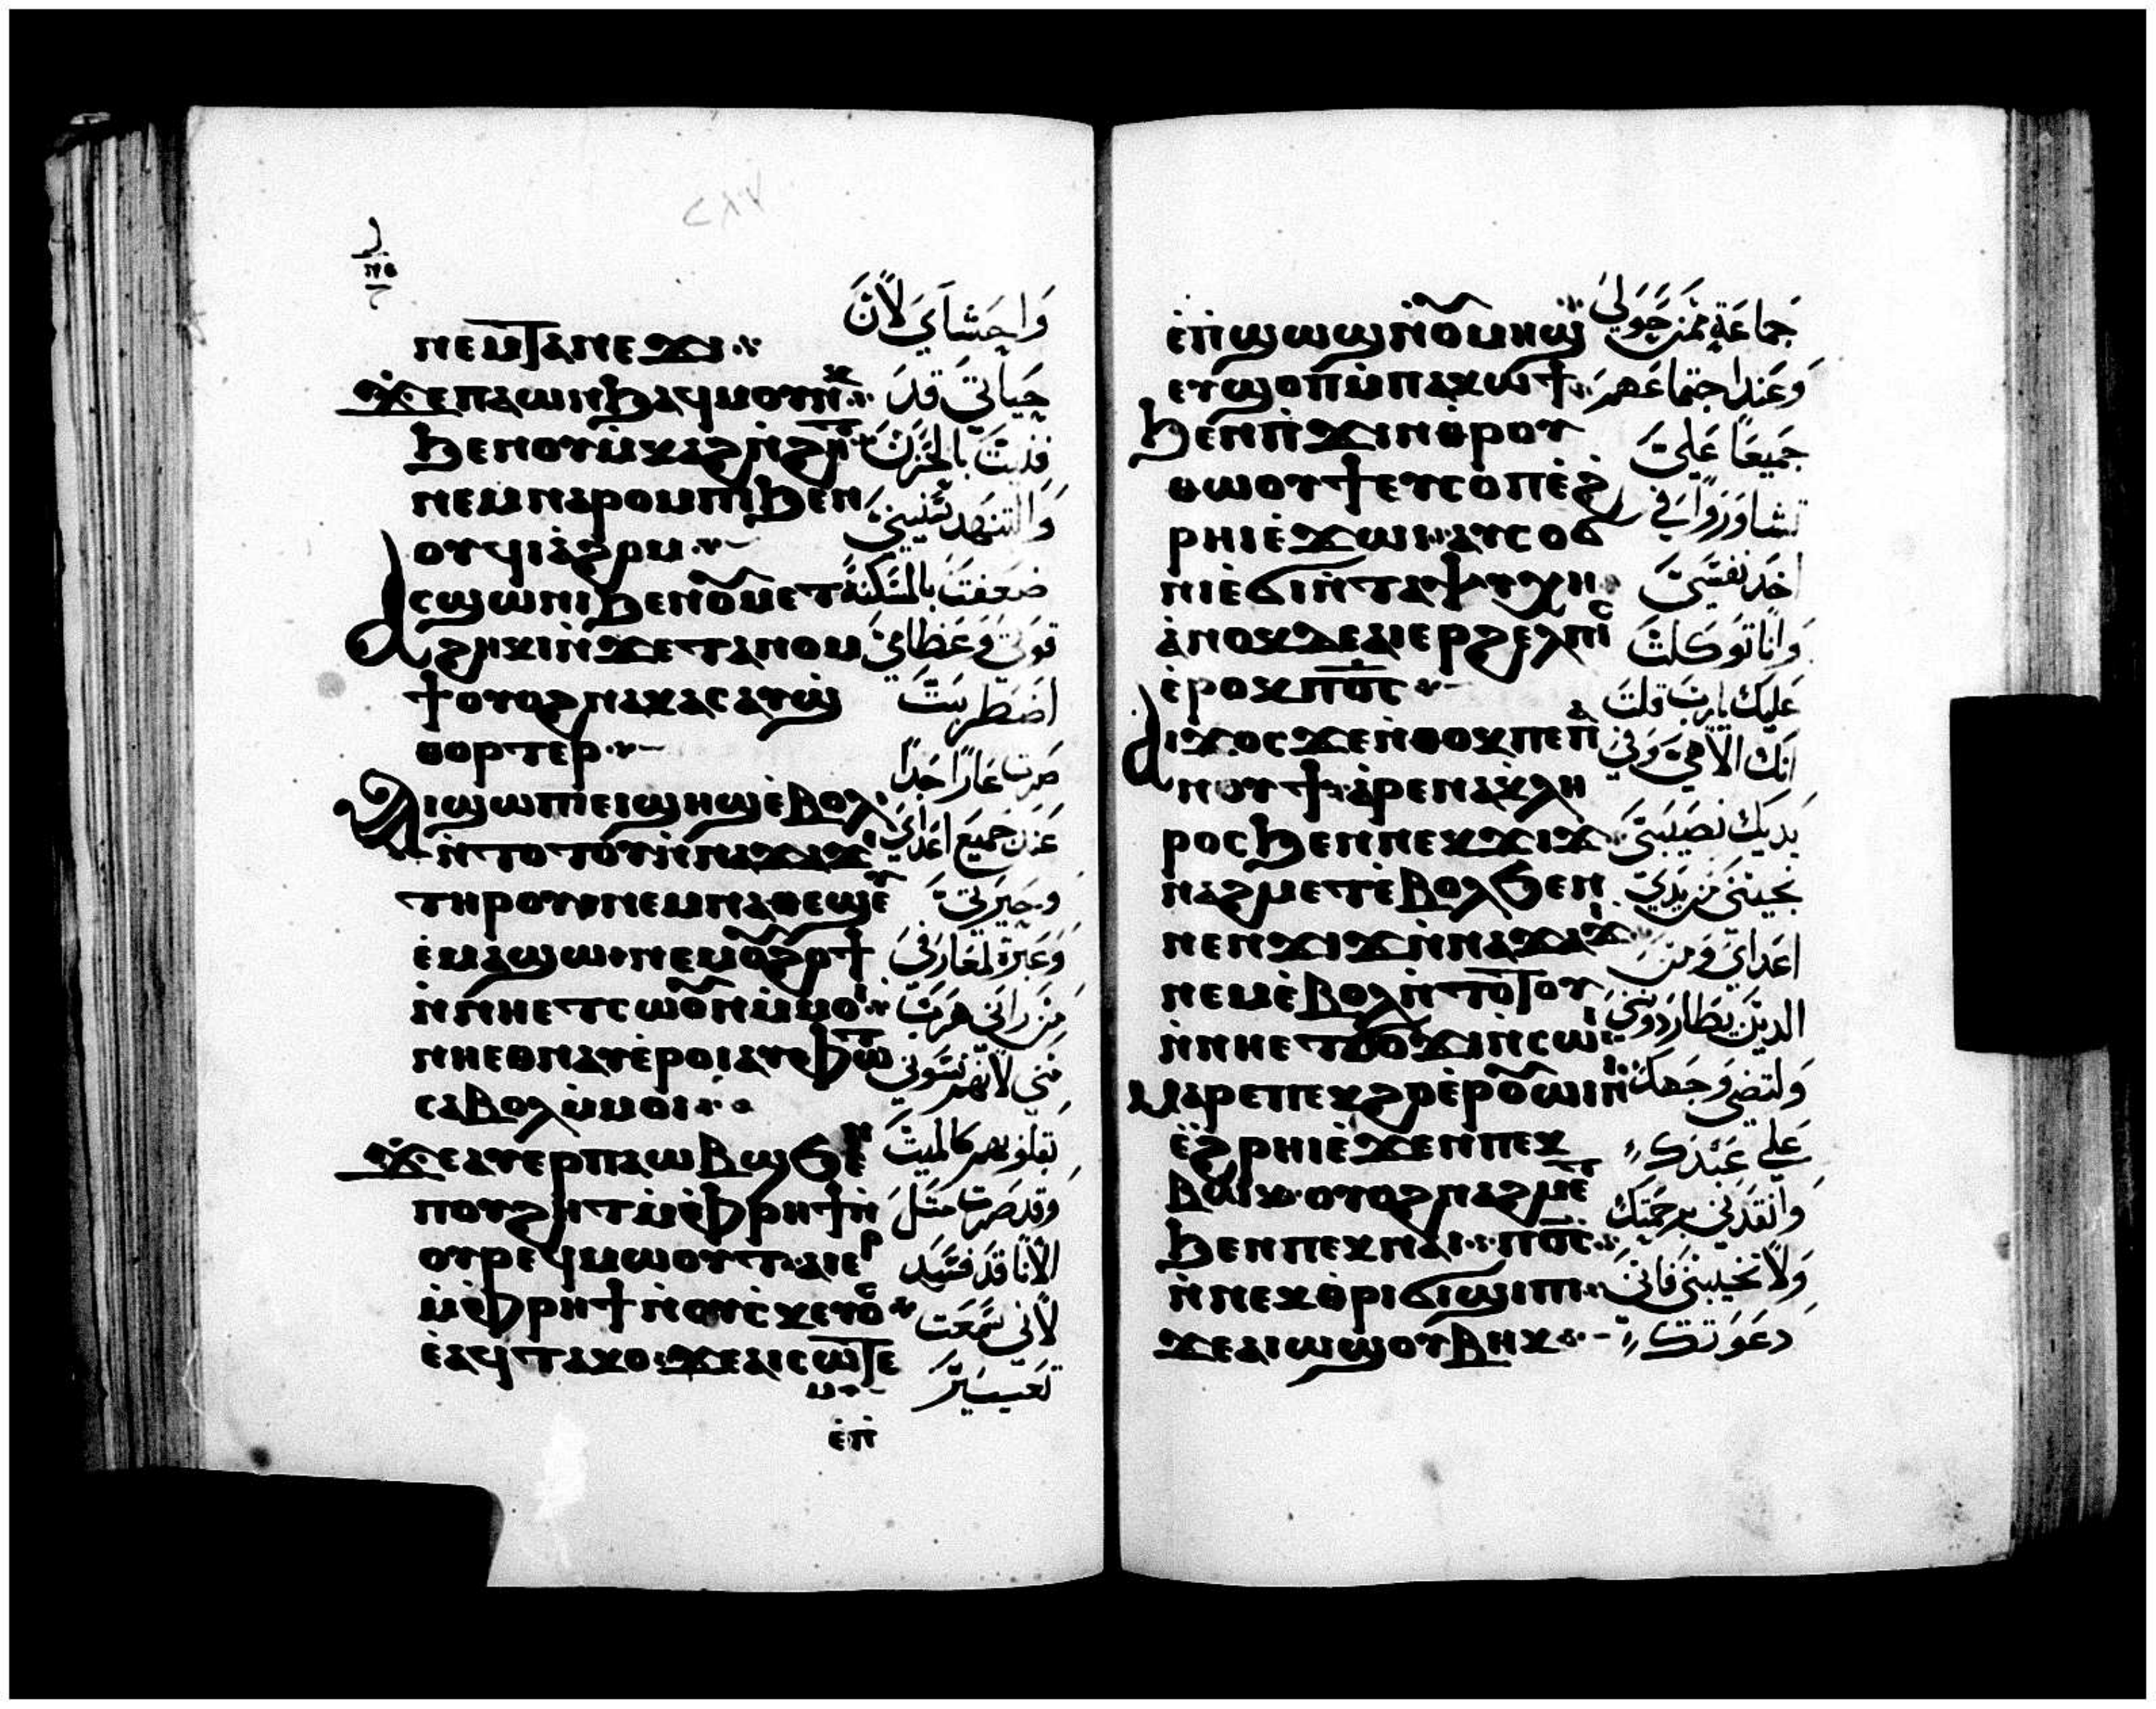 ⲛⲉⲙⲧⲁⲛⲉϫⲓ
ϫⲉⲡⲁⲱⲛϧⲁϥⲙⲟⲩⲛⲕ
ϧⲉⲛⲟⲩⲙⲕⲁϩⲛϩⲏⲧ
ⲛⲉⲙⲛⲁⲣⲟⲙⲡⲓϧⲉⲛ
ⲟⲩϥⲓⲁϩⲟⲙ
ⲁⲥϣⲱⲛⲓϧⲉⲛⲟⲩⲙⲉⲧ
ϩⲏⲕⲓⲛϫⲉⲧⲁⲛⲟⲙ
ϯⲟⲩⲟϩⲛⲁⲕⲁⲥⲁⲩϣ
ⲑⲟⲣⲧⲉⲣ
ⲁⲓϣⲱⲡⲓⲉⲓϣⲏϣⲉⲃⲟⲗ
ⲛⲧⲟⲧⲟⲩⲛⲛⲁϫⲁϫⲓ
ⲧⲏⲣⲟⲩⲛⲉⲙⲛⲁⲑⲉϣⲉⲩ
ⲉⲙⲁϣⲱⲛⲉⲙⲟⲩϩⲟϯ
ⲛⲛⲏⲉⲧⲥⲱⲟⲩⲛⲙⲙⲟⲓ
ⲛⲏⲉⲑⲛⲁⲩⲉⲣⲟⲓⲁⲩⲫⲱⲧ
ⲥⲁⲃⲟⲗⲙⲙⲟⲓ
ϫⲉⲁⲩⲉⲣⲡⲁⲱⲃϣϧⲉⲛ
ⲡⲟⲩϩⲏⲧⲙⲫⲣⲏϯⲛ
ⲟⲩⲣⲉϥⲙⲱⲟⲩⲧⲁⲓⲉⲣ
ⲙⲫⲣⲏϯⲛⲟⲩⲥⲕⲉⲩⲟⲥ
ⲉⲁϥⲧⲁⲕⲟϫⲉⲁⲓⲥⲱⲧⲉ
ⲙ
ⲉⲡ
واحشاي لان
حياتي قد
فنيت بالحزن
والتنهد سنيني
ضعفت بالمسكنة
قوتي وعظامي
اضطربت
صرت عارا جدا
عند جميع اعداي
وجيرتي
وعبرة لمعارفي
من راني هرب
مني لانهم نسوني
بقلوبهم كالميت
وقد صرت مثل
الانا قد فسد
لاني سمعت
تعيير
ⲉⲡϣⲱϣⲛⲟⲩⲙⲏϣ
ⲉⲩϣⲟⲡⲙⲡⲁⲕⲱϯ
ϧⲉⲛⲡϫⲓⲛⲑⲣⲟⲩ
ⲑⲱⲟⲩϯⲉⲩⲥⲟⲡⲉϩ
ⲣⲏⲓⲉϫⲱⲓⲁⲩⲥⲟϭ
ⲛⲓⲉϭⲓⲛⲧⲁⲯⲩⲭⲏ
ⲁⲛⲟⲕⲇⲉⲁⲓⲉⲣϩⲉⲗⲡⲓⲥ
ⲉⲣⲟⲕⲡⲟⲥ
ⲁⲓϫⲟⲥϫⲉⲛⲑⲟⲕⲡⲉⲡⲁ
ⲛⲟⲩϯⲁⲣⲉⲛⲁⲕⲗⲏ
ⲣⲟⲥϧⲉⲛⲛⲉⲕϫⲓϫ
ⲛⲁϩⲙⲉⲧⲉⲃⲟⲗϧⲉⲛ
ⲛⲉⲛϫⲓϫⲛⲛⲁϫⲁϫⲓ
ⲛⲉⲙⲉⲃⲟⲗⲛⲧⲟⲧⲟⲩ
ⲛⲛⲏⲉⲧϭⲟϫⲓⲛⲥⲱⲓ
ⲙⲁⲣⲉⲡⲉⲕϩⲟⲉⲣⲟⲩⲱⲓⲛⲓ
ⲉϩⲣⲏⲓⲉϫⲉⲛⲡⲉⲕ
ⲃⲱⲕⲟⲩⲟϩⲛⲁϩⲙⲉⲧ
ϧⲉⲛⲡⲉⲕⲛⲁⲓⲡⲟⲥ
ⲛⲛⲉⲕⲑⲣⲓϭⲓϣⲓⲡⲓ
ϫⲉⲁⲓⲱϣⲟⲩⲃⲏⲕ
جماعة ممن حولي
وعند اجتماعهم
جميعا علي
تشاوروا في
اخد نفسي
وانا توكلت
عليك يارب قلت
انك الاهي وفي
يديك نصيبي
نجيني من يدي
اعداي ومن
الدين يطاردونني
ولتضي وجهك
علي عبدك
وانقدني برحمتك
ولا تخيبني فانني
دعوتك